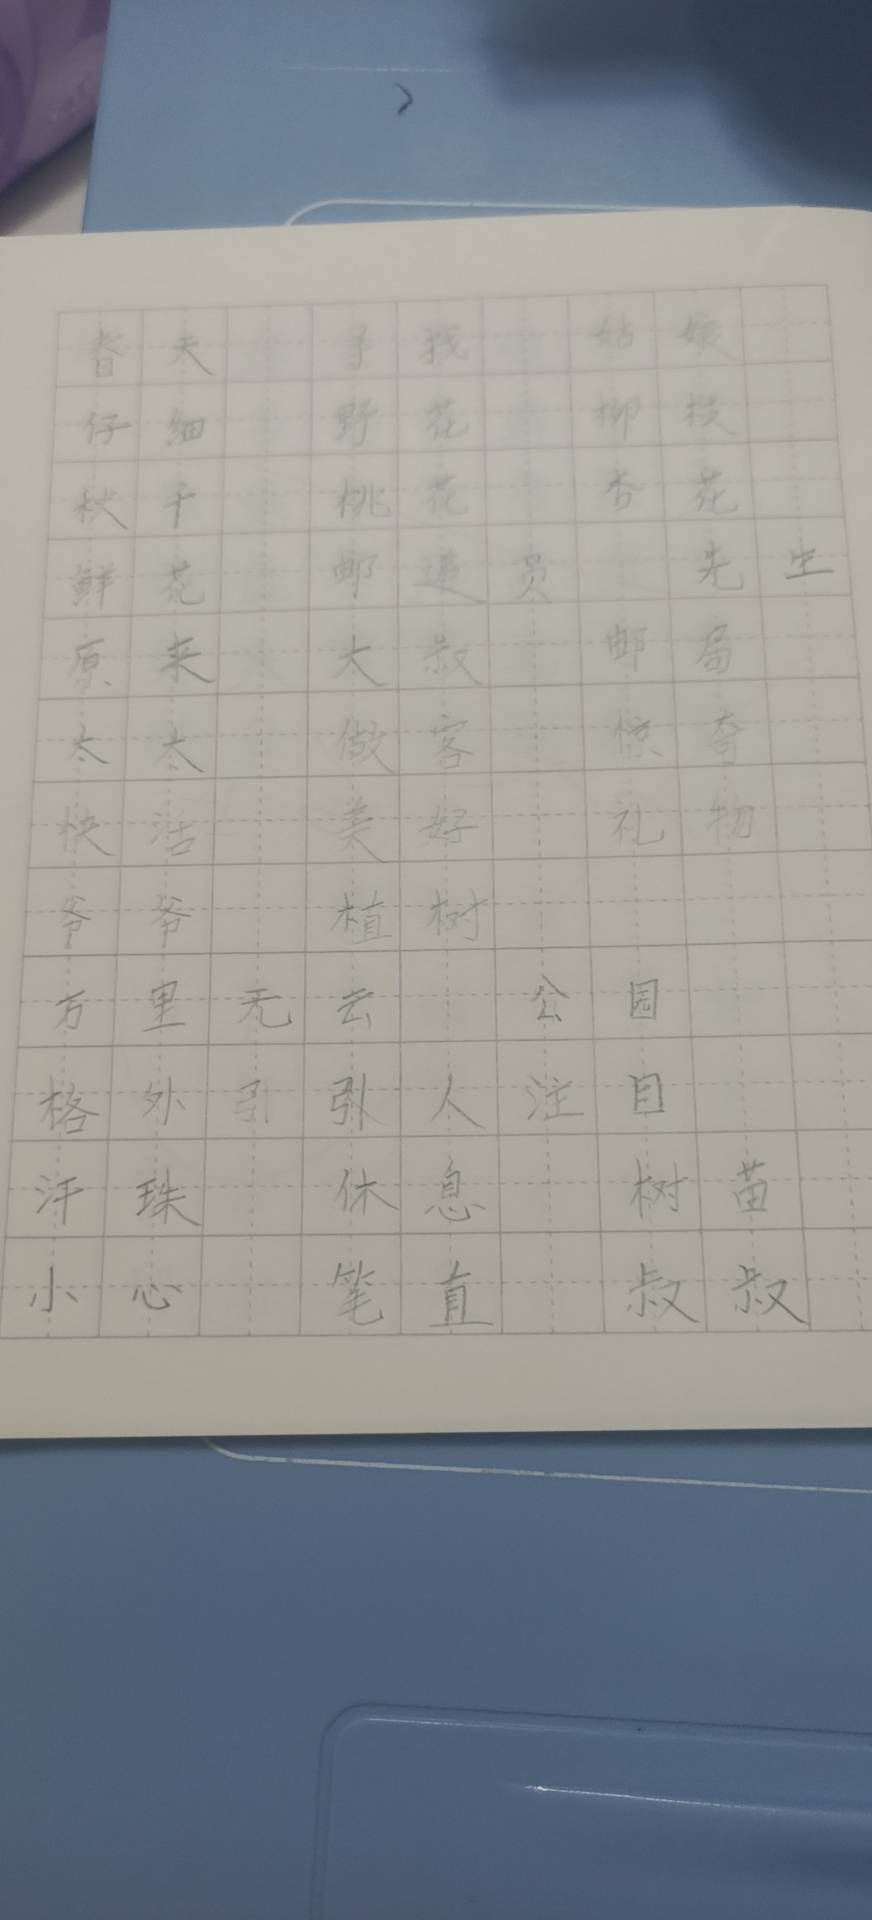 春天 寻找 姑娘
仔细 野花 柳枝
秋千 桃花 杏花
鲜花 邮递员 先生
原来 大叔 邮局
太太 做客 惊奇
快活 美好 礼物
爷爷 植树
万里无云 公园
格外 引引人注目
汗珠 休息 树苗
小心 笔直 叔叔